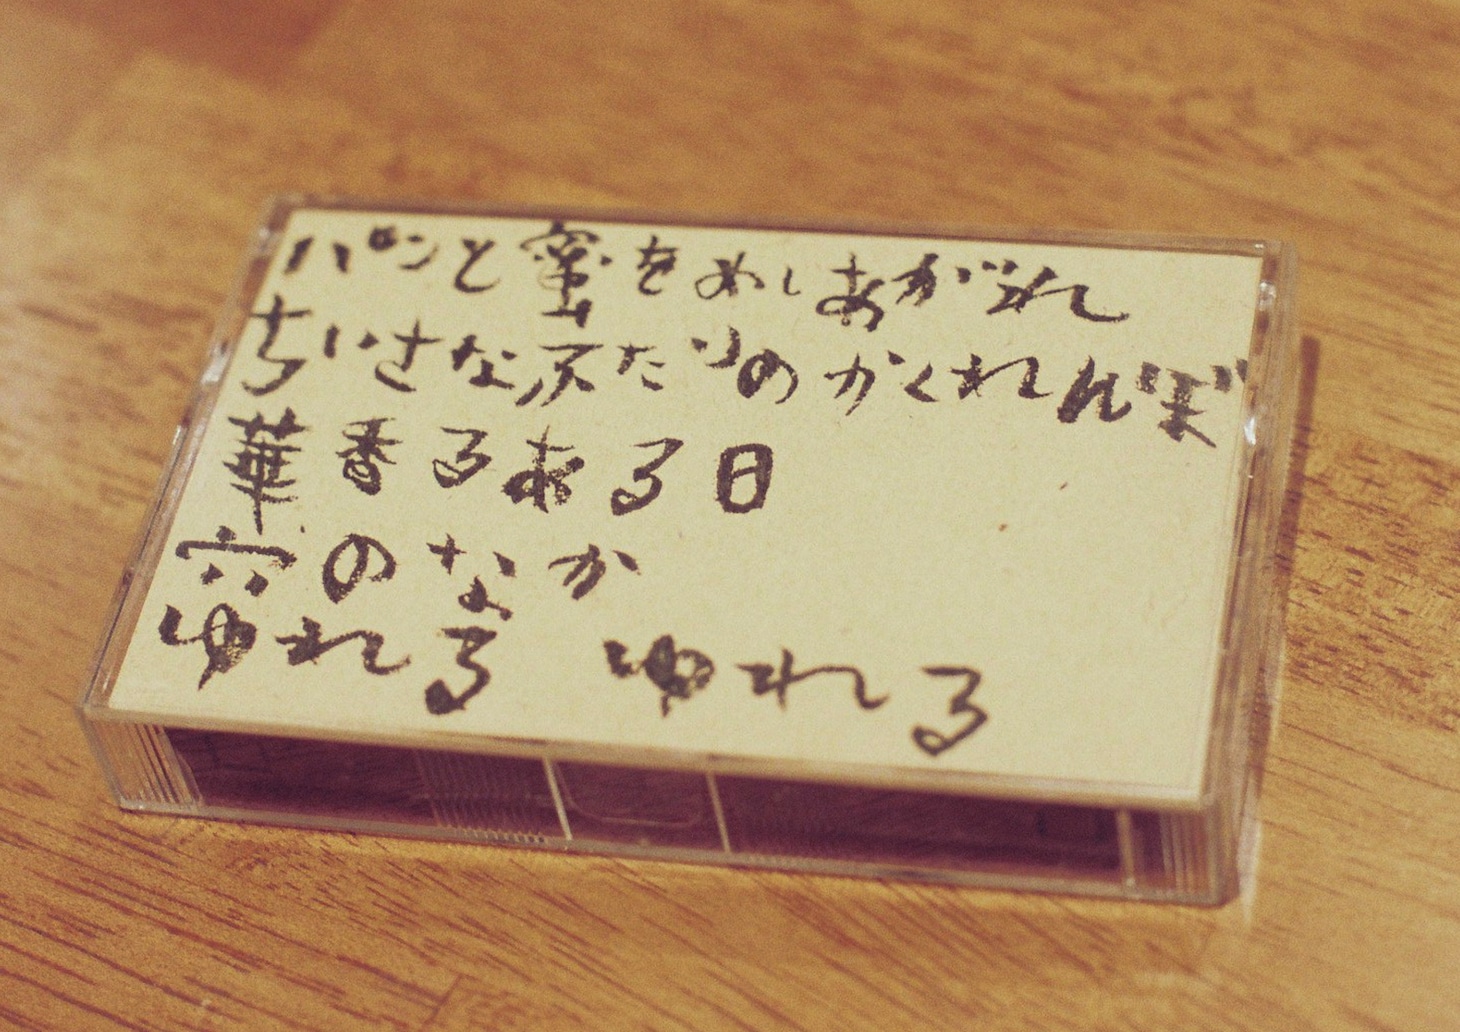 パンと蜜をめしあがれ
ちいさなふたりのかくれんぼ
華香るある日
穴のなか
ゆれる ゆれる